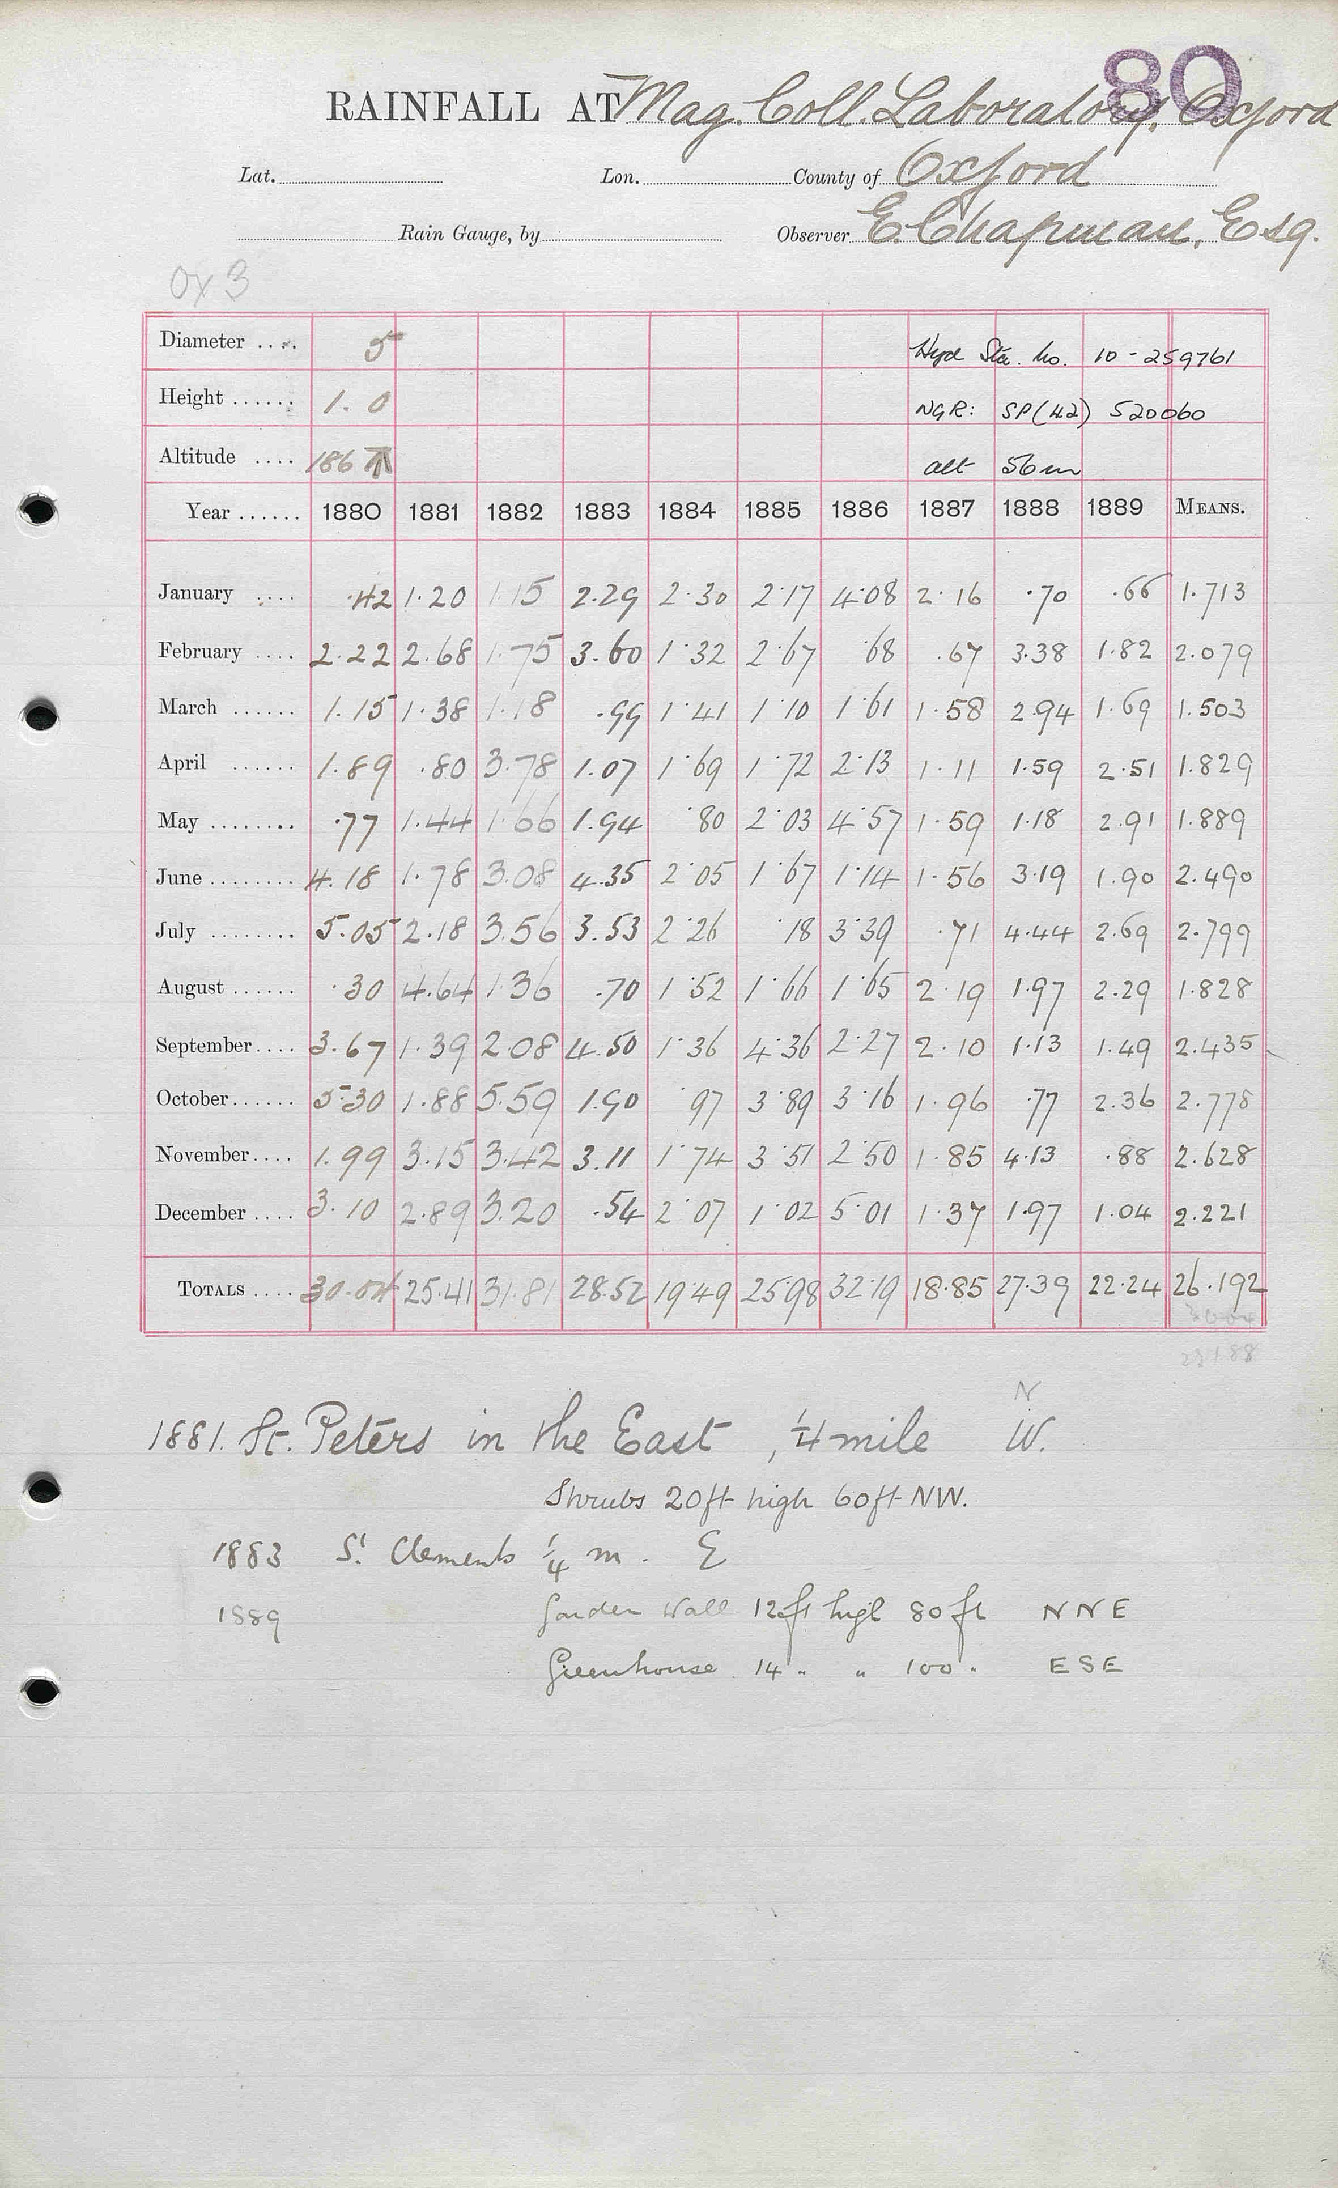 80
RAINFALL AT Mag. Coll. Laboratory, Oxford
Lat. Lon. County of Oxford
Rain Gauge, by Observer E. Chapman, Esq.
Ox 3
Diameter .... 5 Hyd Sta. No. 10 - 259761
Height ...... 1. 0 NGR: SP(42) 520060
Altitude .... 186 alt 56m
Year ...... 1880 1881 1882 1883 1884 1885 1886 1887 1888 1889 MEANS.
January .... .42 1.20 1.15 2.29 2.30 2.17 4.08 2.16 .70 .66 1.713
February .... 2.22 2.68 1.75 3.60 1.32 2.67 .68 .67 3.38 1.82 2.079
March ...... 1.15 1.38 1.18 .99 1.41 1.10 1.61 1.58 2.94 1.69 1.503
April ...... 1.89 .80 3.78 1.07 1.69 1.72 2.13 1.11 1.59 2.51 1.829
May ........ .77 1.44 1.66 1.94 .80 2.03 4.57 1.59 1.18 2.91 1.889
June ........ 4.18 1.78 3.08 4.35 2.05 1.67 1.14 1.56 3.19 1.90 2.490
July ........ 5.05 2.18 3.56 3.53 2.26 .18 3.39 .71 4.44 2.69 2.799
August ...... .30 4.64 1.36 .70 1.52 1.66 1.65 2.19 1.97 2.29 1.828
September .... 3.67 1.39 2.08 4.50 1.36 4.36 2.27 2.10 1.13 1.49 2.435
October ...... 5.30 1.88 5.59 1.90 .97 3.89 3.16 1.96 .77 2.36 2.778
November .... 1.99 3.15 3.42 3.11 1.74 3.51 2.50 1.85 4.13 .88 2.628
December .... 3.10 2.89 3.20 .54 2.07 1.02 5.01 1.37 1.97 1.04 2.221
TOTALS .... 30.04 25.41 31.81 28.52 19.49 25.98 32.19 18.85 27.39 22.24 26.192
3004
N
1881. St. Peters in the East , 1/4 mile W.
Shrubs 20ft high 60ft NW.
1883 St Clements 1/4 m. E
1889 Garden Wall 12ft high 80ft NNE
Greenhouse 14 " " 100 " ESE